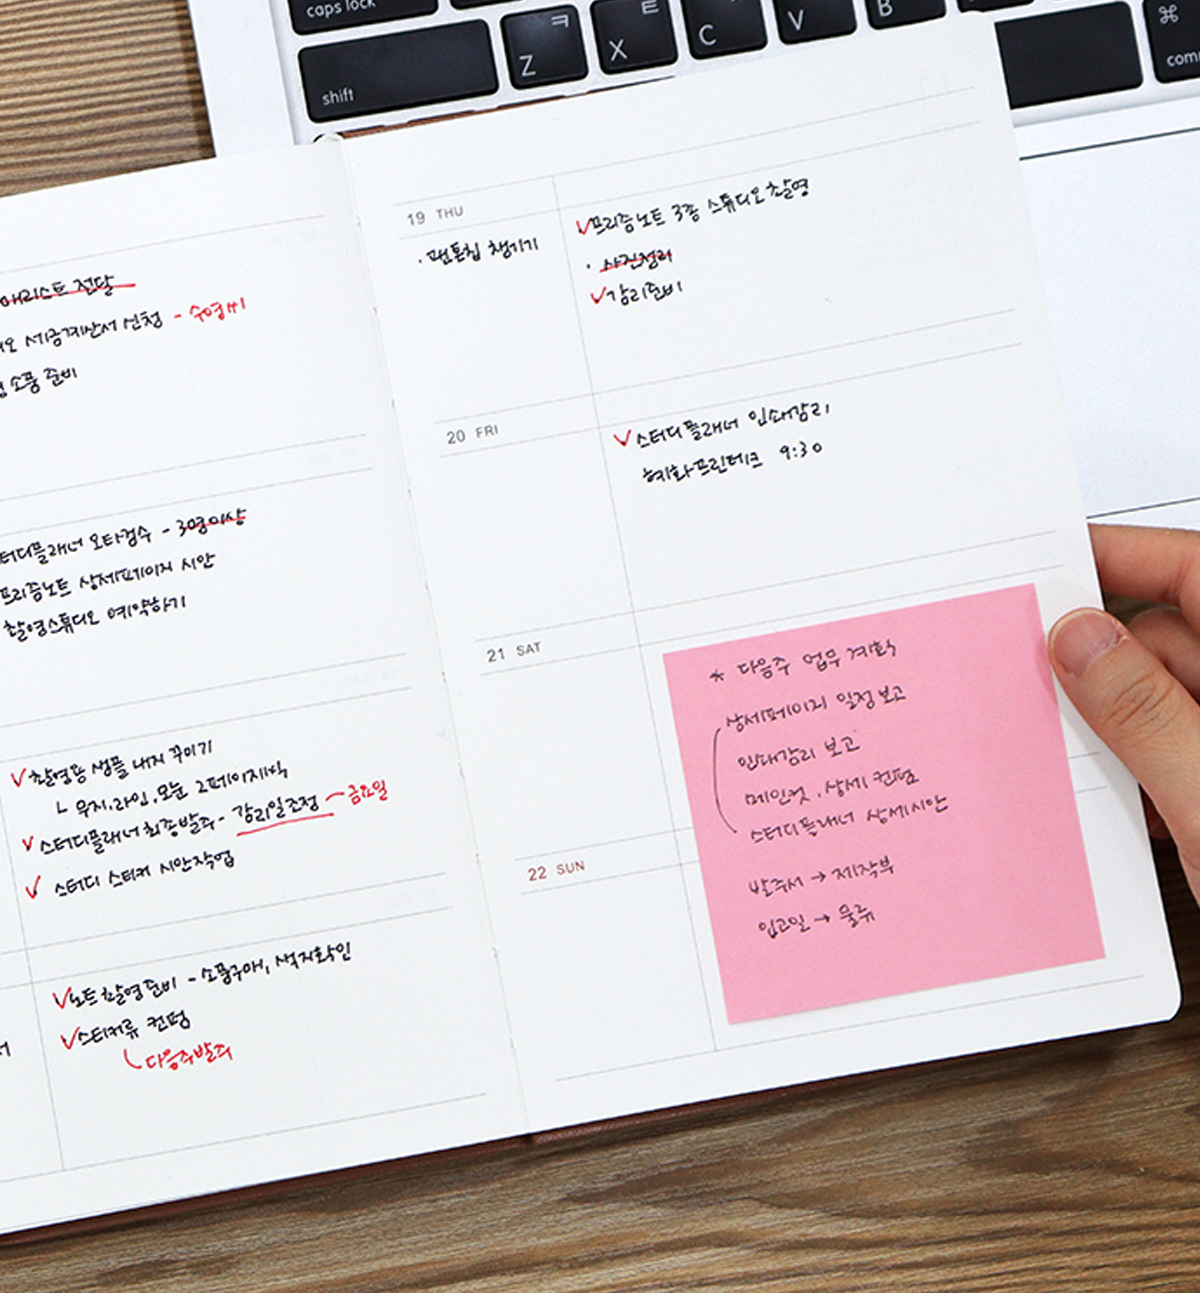 caps lock
shift
ㅋ
Z
ㅌ
X
C
V
B
⌘
comm
매리스트 전달
오 세금계산서 신청 - 수영씨
소품 준비
터디플래너 오타검수 - 3명이상
프리즘노트 상세페이지 시안
촬영스튜디오 예약하기
✓ 촬영용 샘플 내지 꾸미기
ㄴ 무지.라인.모눈 2페이지씩
✓ 스터디플래너 최종발주 - 감리일조정 - 금요일
✓ 스터디 스티커 시안작업
✓ 노트촬영준비 - 소품구매, 색지확인
✓ 스티커류 컨펌
다음주발주
서
19 THU
· 팬톤칩 챙기기
✓ 프리즘노트 3종 스튜디오 촬영
· 사진정리
✓ 감리준비
20 FRI
✓ 스터디플래너 인쇄감리
예화프린테크 9:30
21 SAT
22 SUN
* 다음주 업무 계획
상세페이지 일정보고
인쇄감리 보고
메인컷 . 상세 컨펌
스터디플래너 상세시안
발주서 → 제작부
입고일 → 물류